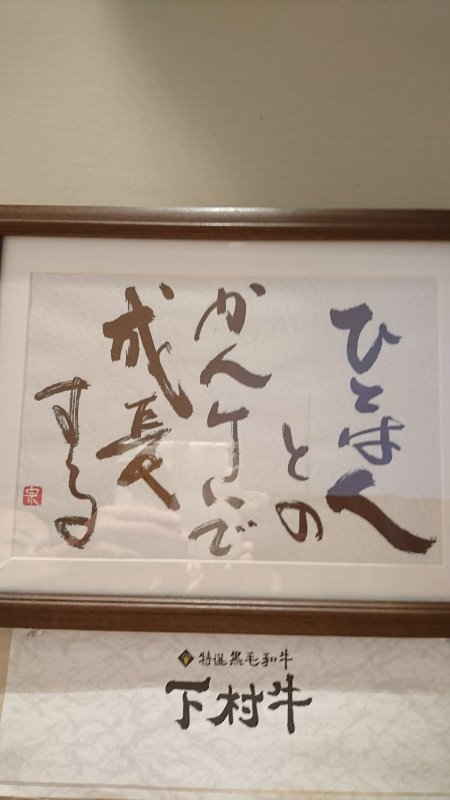 ひとは人
との
かんけいで
成長
する
泉
特選黒毛和牛
下村牛